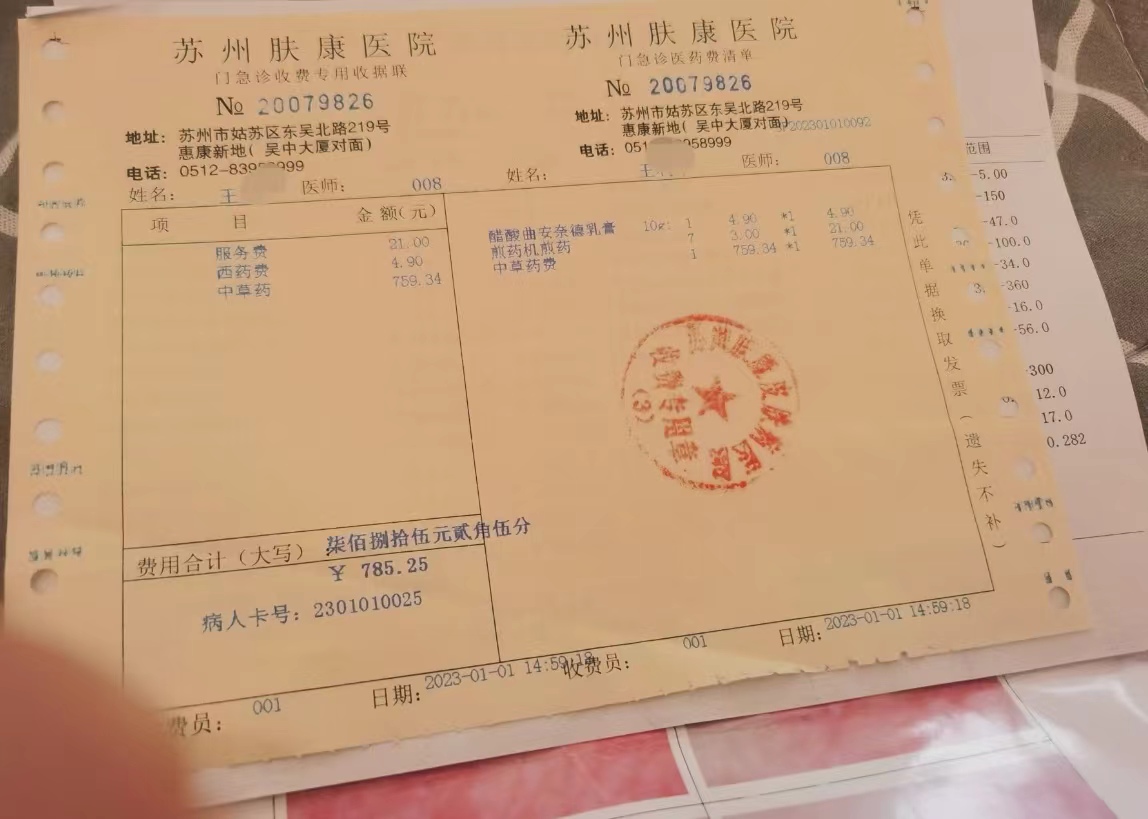 苏州肤康医院
门急诊收费专用收据联
№ 20079826
地址: 苏州市姑苏区东吴北路219号
惠康新地( 吴中大厦对面)
电话: 0512-839 999
姓名: 王 医师: 008
项 目 金额(元)
服务费 21.00
西药费 4.90
中草药 759.34
费用合计(大写) 柒佰捌拾伍元贰角伍分
¥ 785.25
病人卡号: 2301010025
费员: 001 日期: 2023-01-01 14:59:18
苏州肤康医院
门急诊医药费清单
№ 20079826
地址: 苏州市姑苏区东吴北路219号
惠康新地( 吴中大厦对面) 202301010092
电话: 051 958999
姓名: 王 医师: 008
醋酸曲安奈德乳膏 10g: 1 4.90 *1 4.90
煎药机煎药 7 3.00 *1 21.00
中草药费 1 759.34 *1 759.34
收费专用章
(3)
收费员: 001 日期: 2023-01-01 14:59:18
凭此单据换取发票(遗失不补)
范围
-5.00
-150
-47.0
-100.0
-34.0
-360
-16.0
-56.0
-300
12.0
17.0
0.282